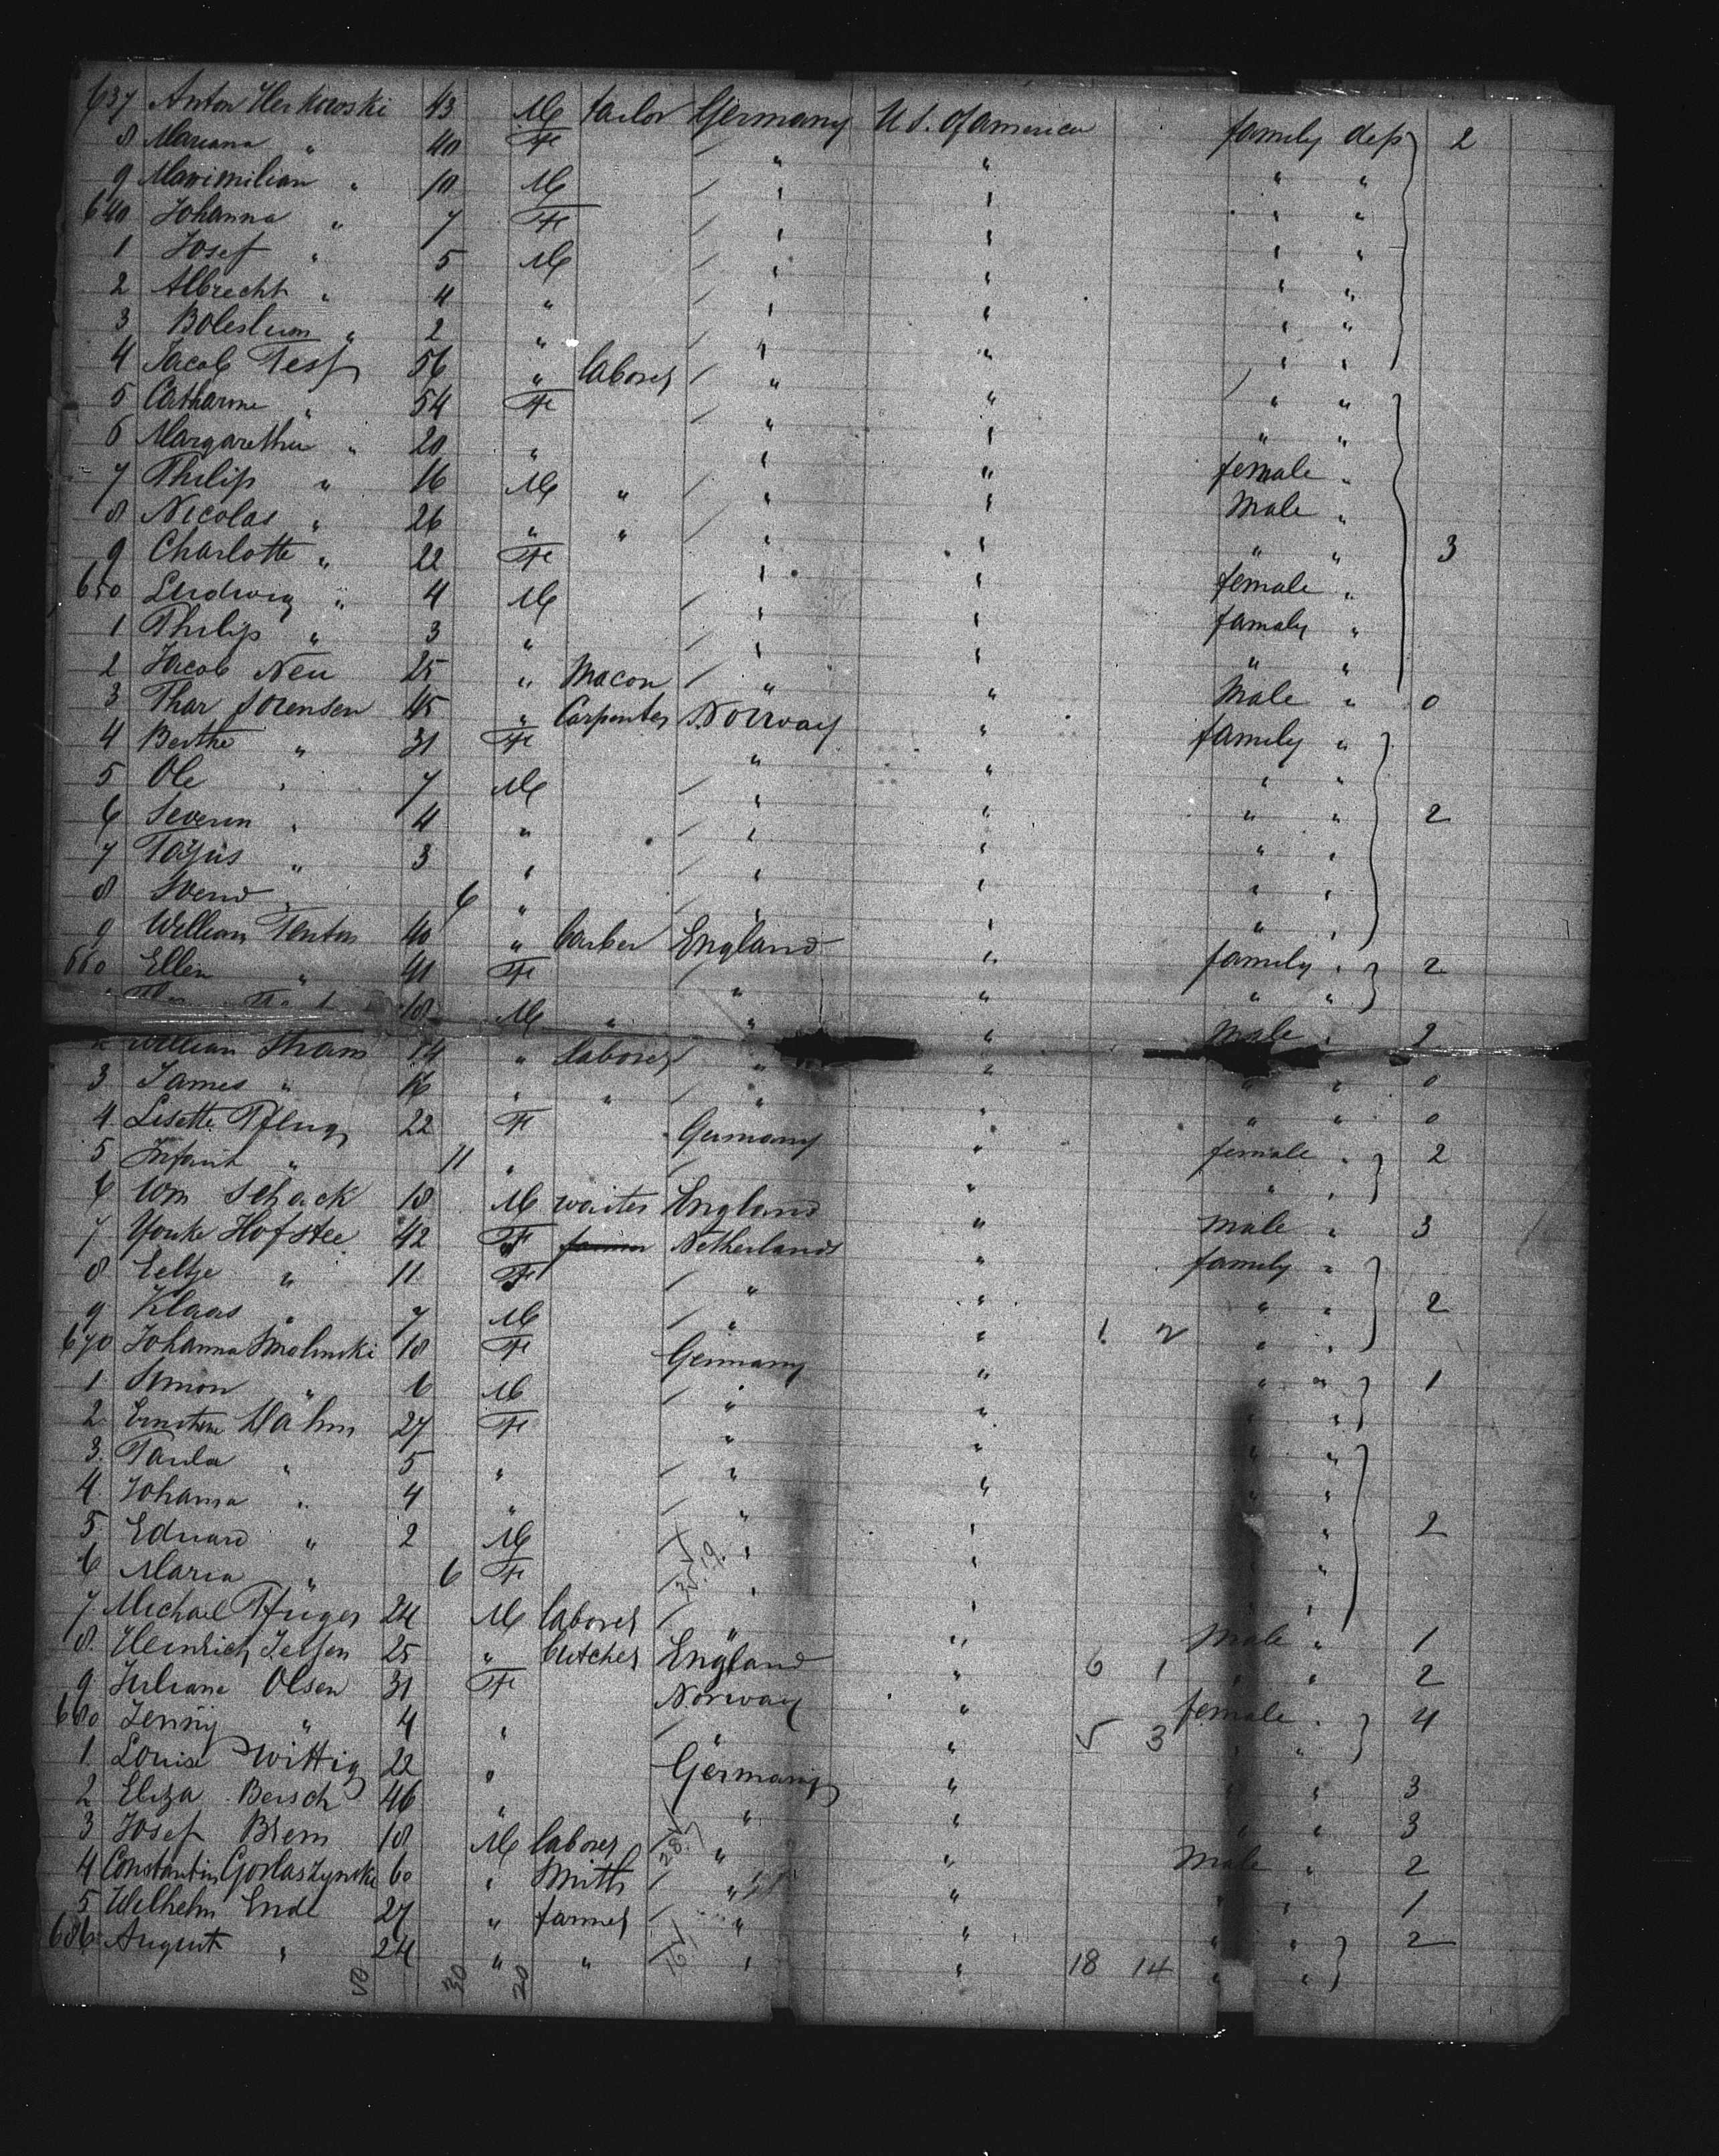 637 Anton Herkowski 43 M tailor Germany U S. of america family dep 2
8 Mariana " 40 Fe / " " " "
9 Maximilian " 10 M / " " " "
640 Johanna " 7 Fe / " " " "
1 Josef " 5 M / " " " "
2 Albrecht " 4 " / " " " "
3 Boleslum " 2 " / " " " "
4 Jacob Tesf 56 " laborer / " " " "
5 Catharine " 54 Fe / " " " "
6 Margaretha " 20 " " " female "
7 Philip " 16 M " / " " Male "
8 Nicolas " 26 " " / " " " " 3
9 Charlotte " 22 Fe " " female "
650 Ludwig " 4 M / " " famaly "
1 Philip " 3 " / " " " "
2 Jacob Neu 25 " Macon / " " Male " 0
3 Thar Sorensen 45 " Carpenter Norway " family "
4 Berthe " 31 Fe " " " "
5 Ole " 7 M / " " " " 2
6 Severin " 4 " / " " " "
7 " 3 " / " " " "
8 Svend " 6 " / " " " "
9 William Tenton 40 " barber England " family " 2
660 Ellen " 41 Fe / " " " "
18 M " " " Male " 2
2 William Sham 14 " laborer / " " " " 0
3 James " 16 " " / " " " " 0
4 Lisette Pflug 22 F Germany " female " 2
5 Infant " 11 " / " " "
6 Wm Schack 18 M waiter England " Male " 3
7 Yonke Hofstee 42 F farmer Netherlands " family "
8 Eeltje " 11 F / " " " " 2
9 Klaas " 7 M / " " 1 2 " "
670 Johanna Smolinski 18 Fe Germany " " " 1
1 Simon " 6 M / " " " "
2 Ernstine Hähm 27 Fe " " " "
3 Paula " 5 " / " " " "
4 Johanna " 4 " / " " " 2
5 Eduard " 2 M / " " "
6 Maria " 6 Fe / " " "
7 Michael Pfluger 24 M laborer / " " Male " 1
8 Heinrich Jessen 25 " butcher England " 6 1 " " 2
9 Juliane Olsen 31 Fe Norway " female " 4
680 Jenny " 4 " / " " 5 3 " "
1 Louise Wittig 22 " Germany " " " 3
2 Eliza Bersch 46 " " " " " 3
3 Josef Brem 18 M laborer / " " Male " 2
4 Constantin Gorlaszynski 60 " Smith / " " " " 1
5 Wilhelm Endl 27 " farmer / " " " " 2
686 August " 24 " " / " " 18 14 " "
50 30 20